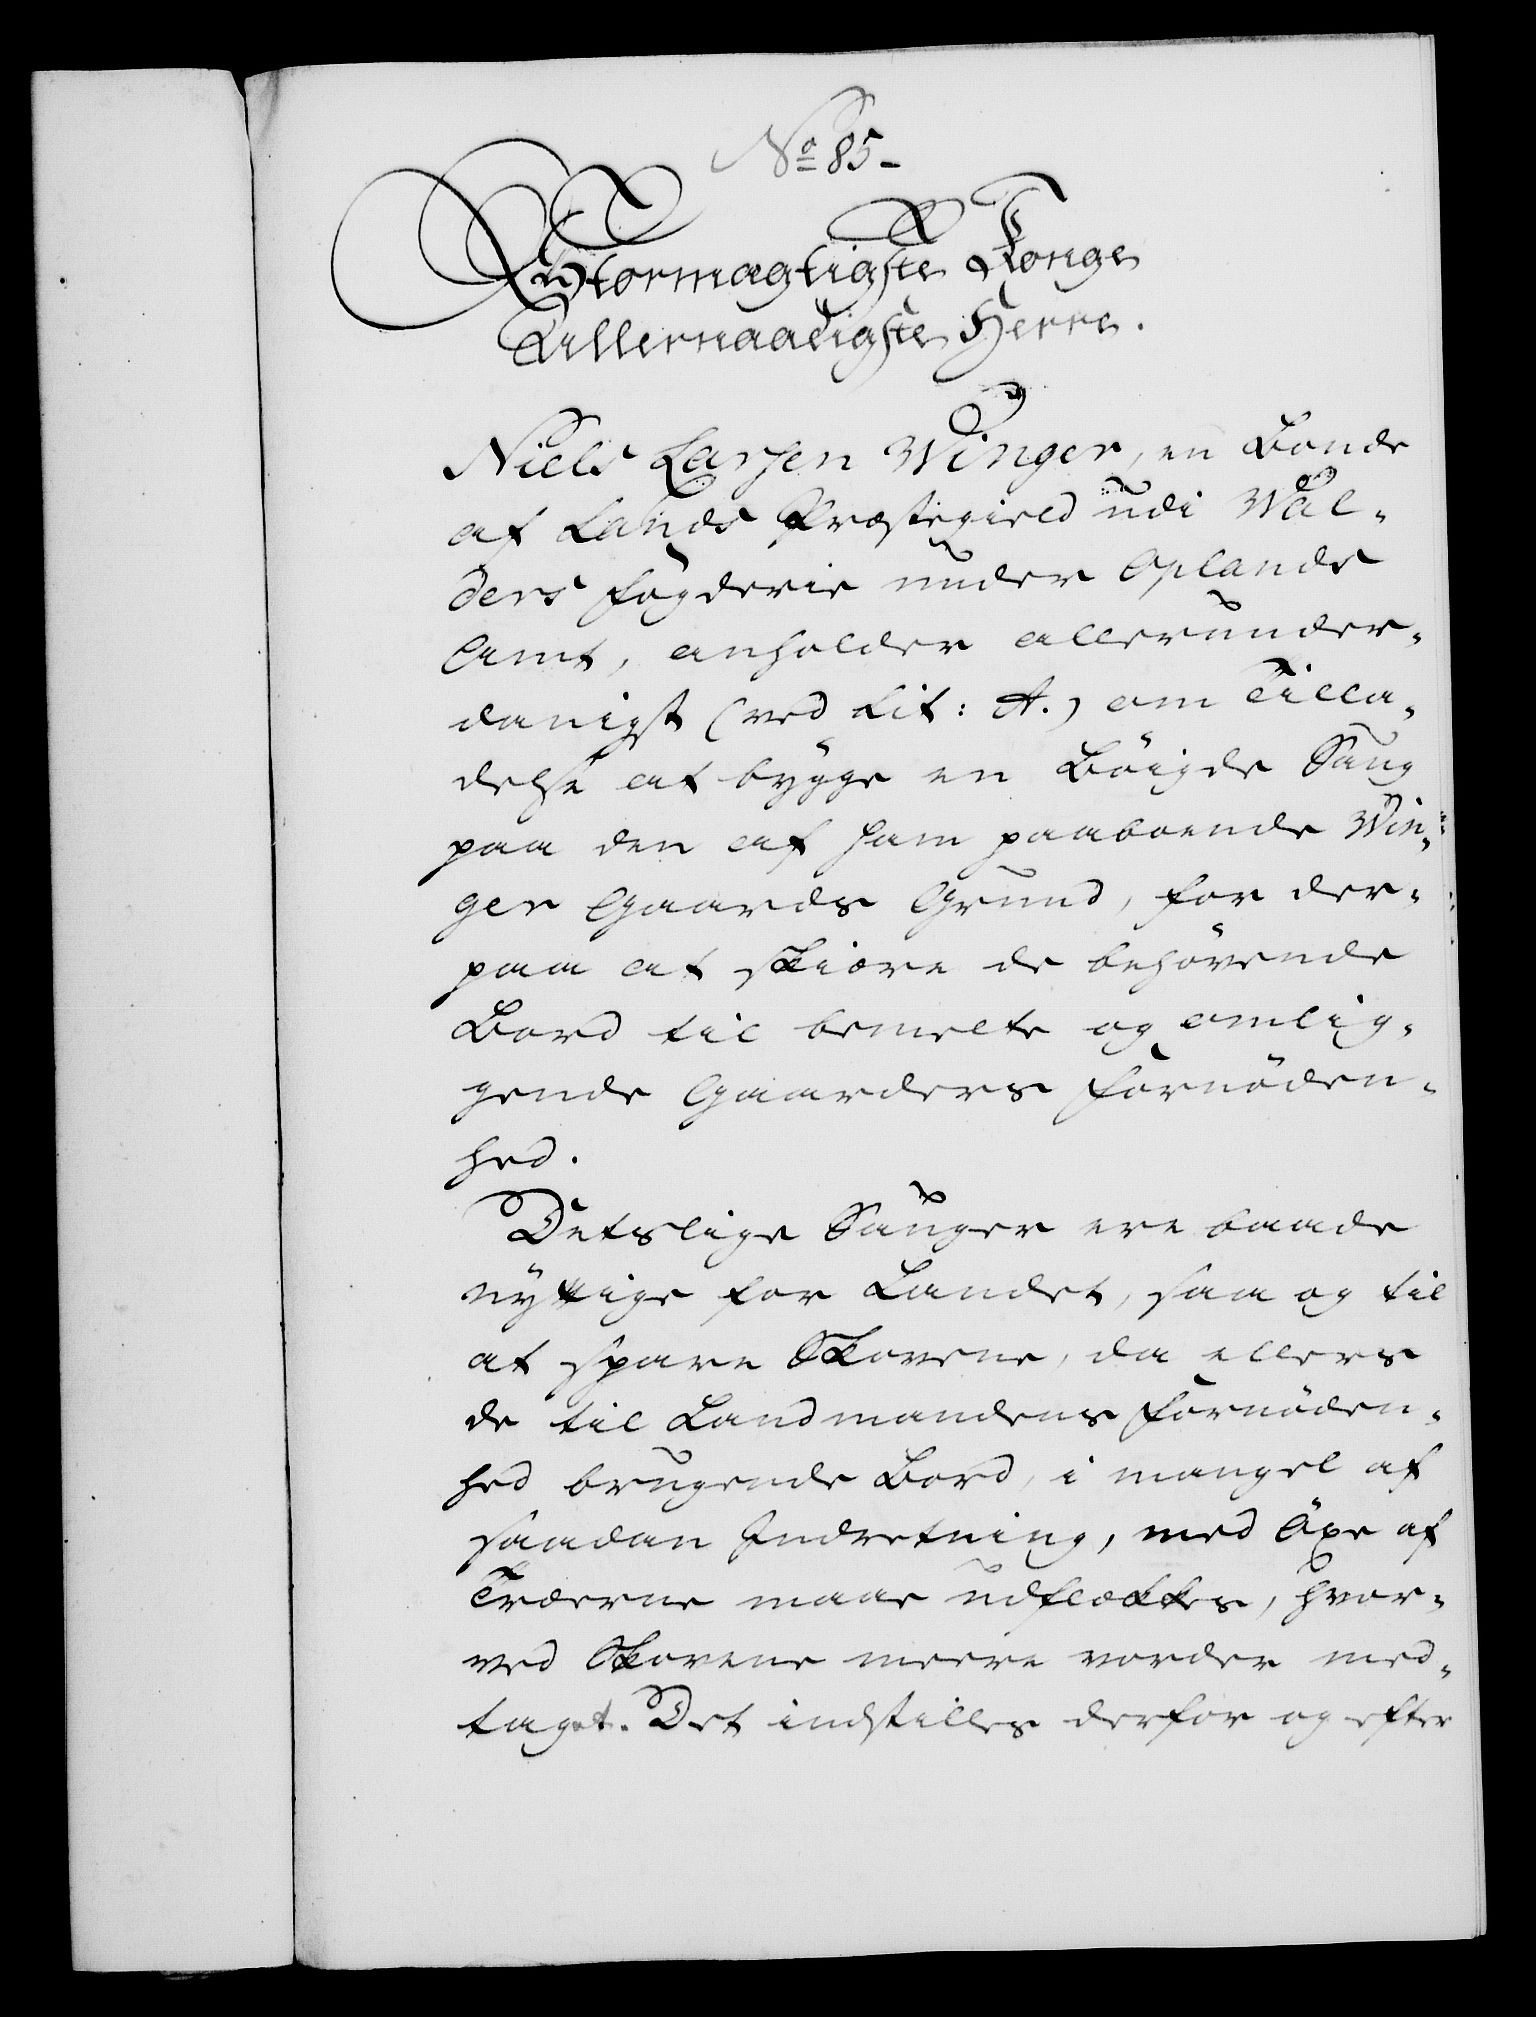 No 85-
Stormægtigste Konge
Allernaadigste Herre.
Niels Larsen Winger, en Bonde
af Lands Præstegield udi Wal-
ders Fogderie under Oplands
Amt, anholder allerunder-
danigst (ved Lit: A.) om Tilla-
delse at bygge en Böigde Saug
paa den af ham paaboende Win-
ger Gaards Grund, for der-
paa at skiære de behövende
Bord til bemelte og omlig-
gende Gaarders Fornöden-
hed.
Detslige Sauger ere baade
nyttige for Landet, saa og til
at spare Skovene, da ellers
de til Landmandens Fornöden-
hed brugende Bord, i mangel af
saadan Indretning, med Öxe af
Træerne maae udflækkes, hvor-
ved Skovene meere vorder med-
taget. Det indstilles derfor og efter